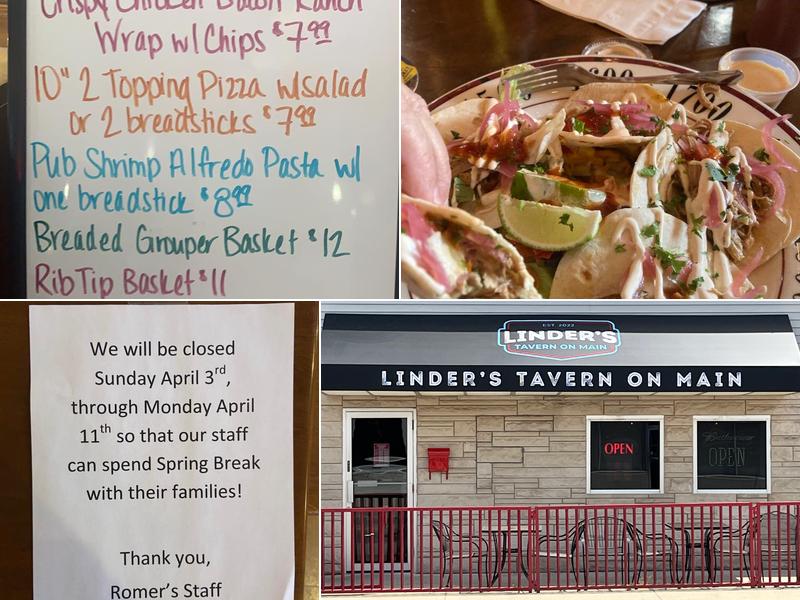 Crispy Chicken Bacon Ranch
Wrap w/ Chips $7.99
10" 2 Topping Pizza w/salad
or 2 breadsticks $7.99
Pub Shrimp Alfredo Pasta w/
one breadstick $8.99
Breaded Grouper Basket $12
Rib Tip Basket $11
We will be closed
Sunday April 3rd,
through Monday April
11th so that our staff
can spend Spring Break
with their families!
Thank you,
Romer's Staff
EST. 2022
LINDER'S
TAVERN ON MAIN
LINDER'S TAVERN ON MAIN
OPEN
Budweiser
OPEN